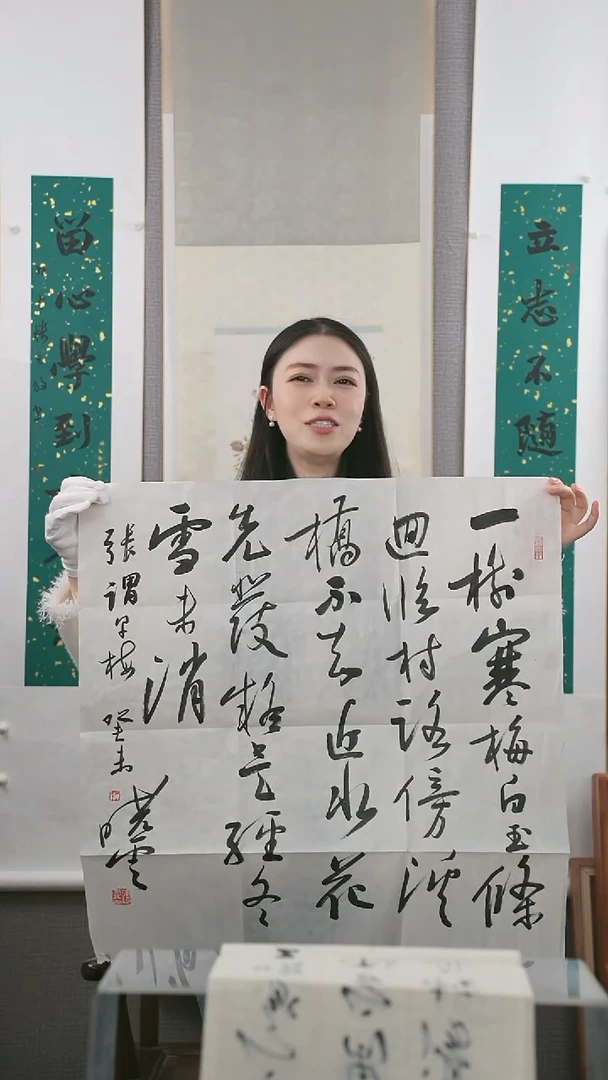 立志不隨
留心學到
一樹寒梅白玉條
迴臨村路傍溪
橋不知近水花
先發疑是經冬
雪未消
張謂早梅 癸未
曉雲